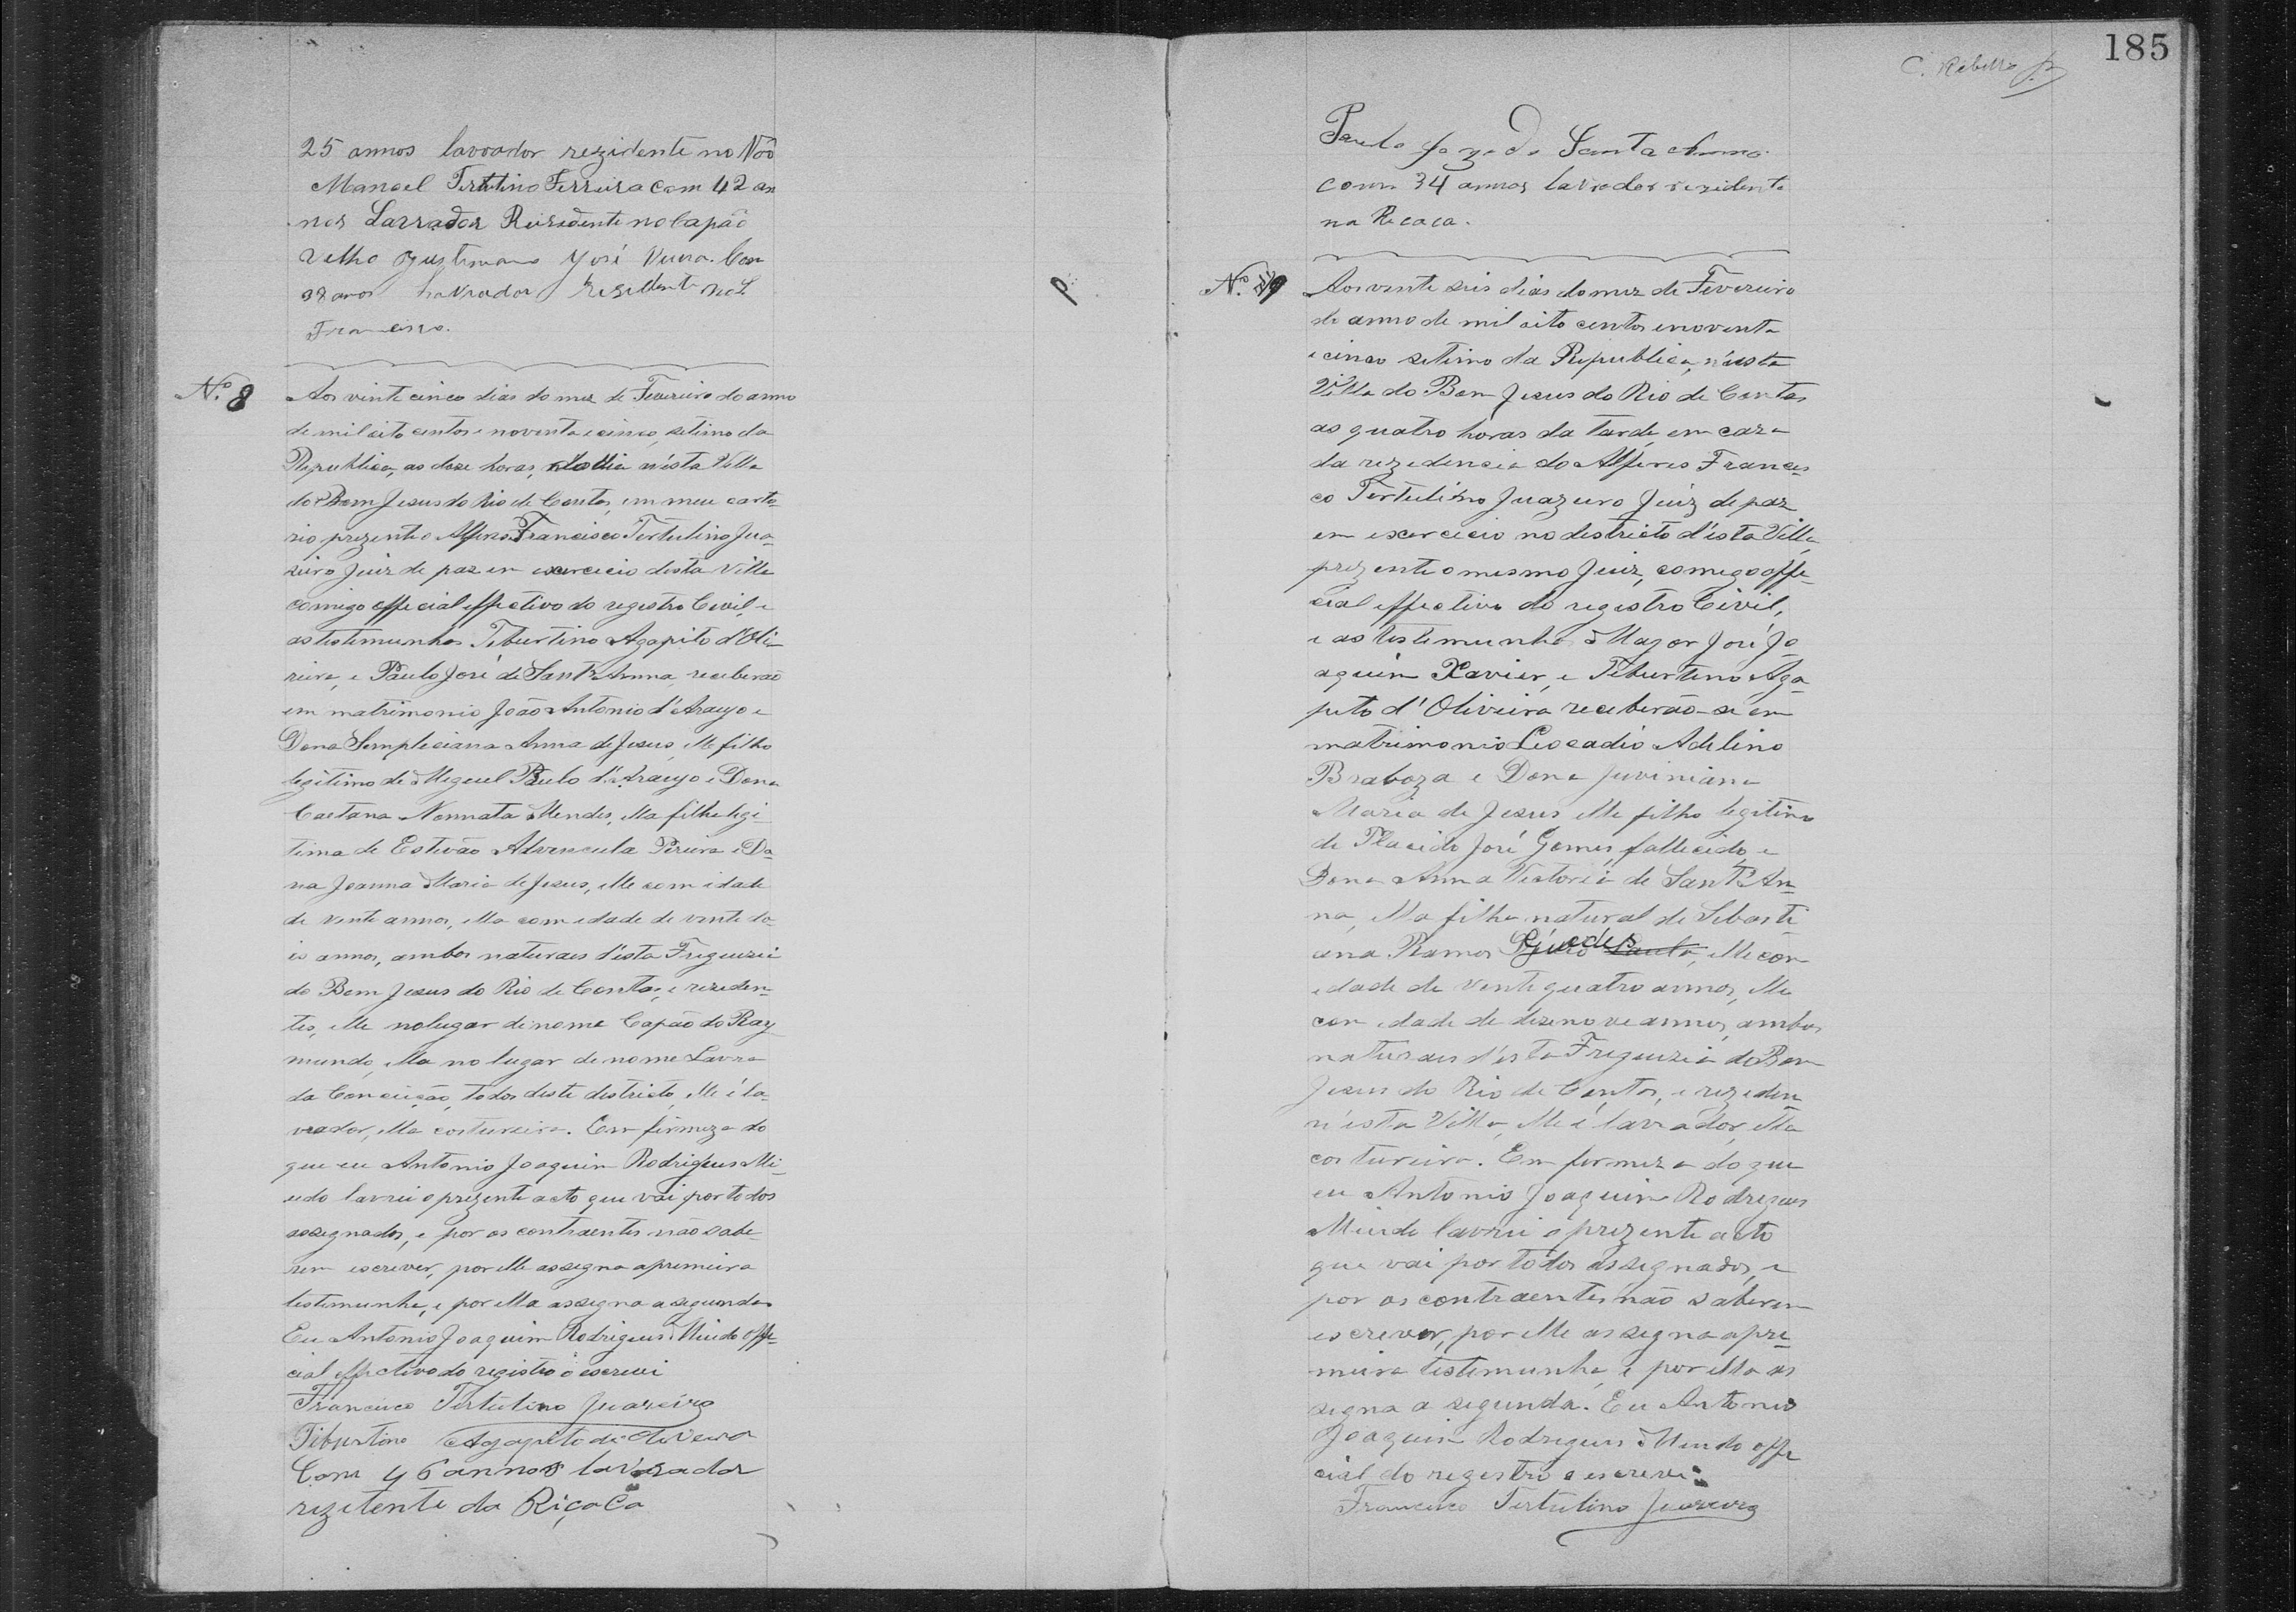 25 annos lavrador rezidente no
Manoel Tertulino Ferreira com 42 an
nos Lavrador Reisidente no Capão
Velho Justiniano José Com
38 anos lavrador Rezidente
Francisco.
Nº 8
Aos vinte cinco dias do mez de Fevereiro do anno
de mil oito centos e noventa e cinco, setimo da
Republica, as doze horas, do dia n'ésta Villa
do Bom Jesus do Rio de Contas, em meu carto-
rio prezente o Alferes Francisco Tertulino Jua-
zeiro Juiz de paz em exercecio desta Villa
comigo offecial effectivo do registro Civil, e
as testemunhas Teburtino Agapito d'Oli-
veira, e Paulo José de Sant'Anna, receberão
em matrimonio João Antonio d'Araujo e
Dona Sempleciana Anna de Jesus, elle filho
legitimo de Meguel Paulo d'Araujo e Dona
Caetana Nonnata Mendes, ella filha legi-
tima de Estevão Advencula Pereira e Do-
na Joanna Maria de Jesus, elle com idade
de vente annos, ella com edade de vente do-
is annos, ambos naturaes d'ésta Freguezia
do Bom Jesus do Rio de Contas, e residen-
tes, elle no lugar de nome Capão do Ray
mundo, ella no lugar de nome Lavra
da Conceição, todos deste destricto, elle é la-
vrador, ella costureira. Em firmeza do
que eu Antonio Joaquim Rodrigues Mi-
udo lavrei o prezente acto que vai por todos
assegnados, e por os contraentes não sabe-
rem escrever, por elle assegna a premeira
testemunha, e por ella assegna a segunda.
Eu Antonio Joaquim Rodrigues Miudo offe-
cial effectivo do registro o escrevi
Francisco Tertulino Juazeiro
Tibustino Agapito de Oliveira
Com 46 annos lavrador
rezitente da Riçaca
185
C. Rebello
Paulo Joze de Santa Anna
com 34 annos lavrador rezidente
na Recaca.
Nº 9
Aos vente seis dias do mez de Fevereiro
do anno de mil oito centos e noventa
e cinco setimo da Republica, n'ésta
Villa do Bom Jesus do Rio de Contas
as quatro horas da tarde, em caza
da rezedencia do Alferes Francis
co Tertulino Juazeiro Juiz de paz
em exercecio no destricto d'ésta Villa,
prezente o mesmo Juiz, comego offe-
cial effectivo do registro Civil,
e as testemunhas Mayor José Jo-
aquim Xavier, e Teburteno Aga-
peto d'Oliveira receberão-se em
matrimonio Leocadio Adelino
Braboza e Dona Juviniana
Maria de Jesus elle filho legitimo
de Placido José Gomes, fallecido, e
Dona Anna Vectoria de Sant'An-
na, ella filha natural de Sebasti-
ana Ramos elle com
edade de vente quatro annos, ella
com edade de dezenove annos, ambos
naturaes d'ésta Freguezia do Bom
Jesus do Rio de Contas, e rezeden
n'ésta Villa, elle é lavrador, ella
costureira. Em firmeza do que
eu Antonio Joaquim Rodregues
Miudo lavrei o prezente acto
que vai por todos assegnados, e
por os contraentes não saberem
escrever, por elle assegna a pre-
meira testemunha, e por ella as
segna a segunda. Eu Antonio
Joaquim Rodregues Miudo offe
cial do registro o escrevi.
Francisco Tertulino Juazeiro